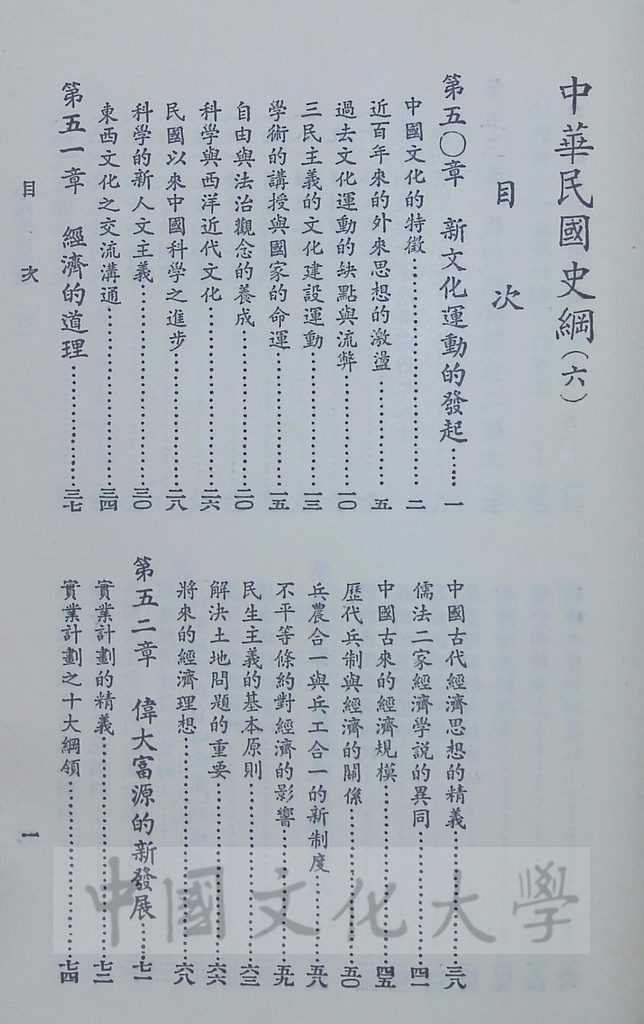 中華民國史綱（六）
目次
第五〇章　新文化運動的發起……一
中國文化的特徵……二
近百年來的外來思想的激盪……五
過去文化運動的缺點與流弊……一〇
三民主義的文化建設運動……一三
學術的講授與國家的命運……一五
自由與法治觀念的養成……二〇
科學與西洋近代文化……二六
民國以來中國科學之進步……二八
科學的新人文主義……三〇
東西文化之交流溝通……三四
第五一章　經濟的道理……三七
中國古代經濟思想的精義……三八
儒法二家經濟學說的異同……四一
中國古來的經濟規模……四五
歷代兵制與經濟的關係……五〇
兵農合一與兵工合一的新制度……五八
不平等條約對經濟的影響……五九
民生主義的基本原則……六三
解決土地問題的重要……六六
將來的經濟理想……六八
第五二章　偉大富源的新發展……七一
實業計劃的精義……七二
實業計劃之十大綱領……七四
目次
一
中國文化大學